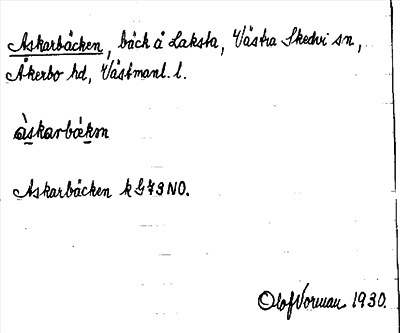 Askarbäcken, bäck å Laksta, Västra Skedvi sn,
Åkerbo hd, Västmanl. l.
àskarbækṃ
Askarbäcken k G 73 NO.
Olof Norman 1930.